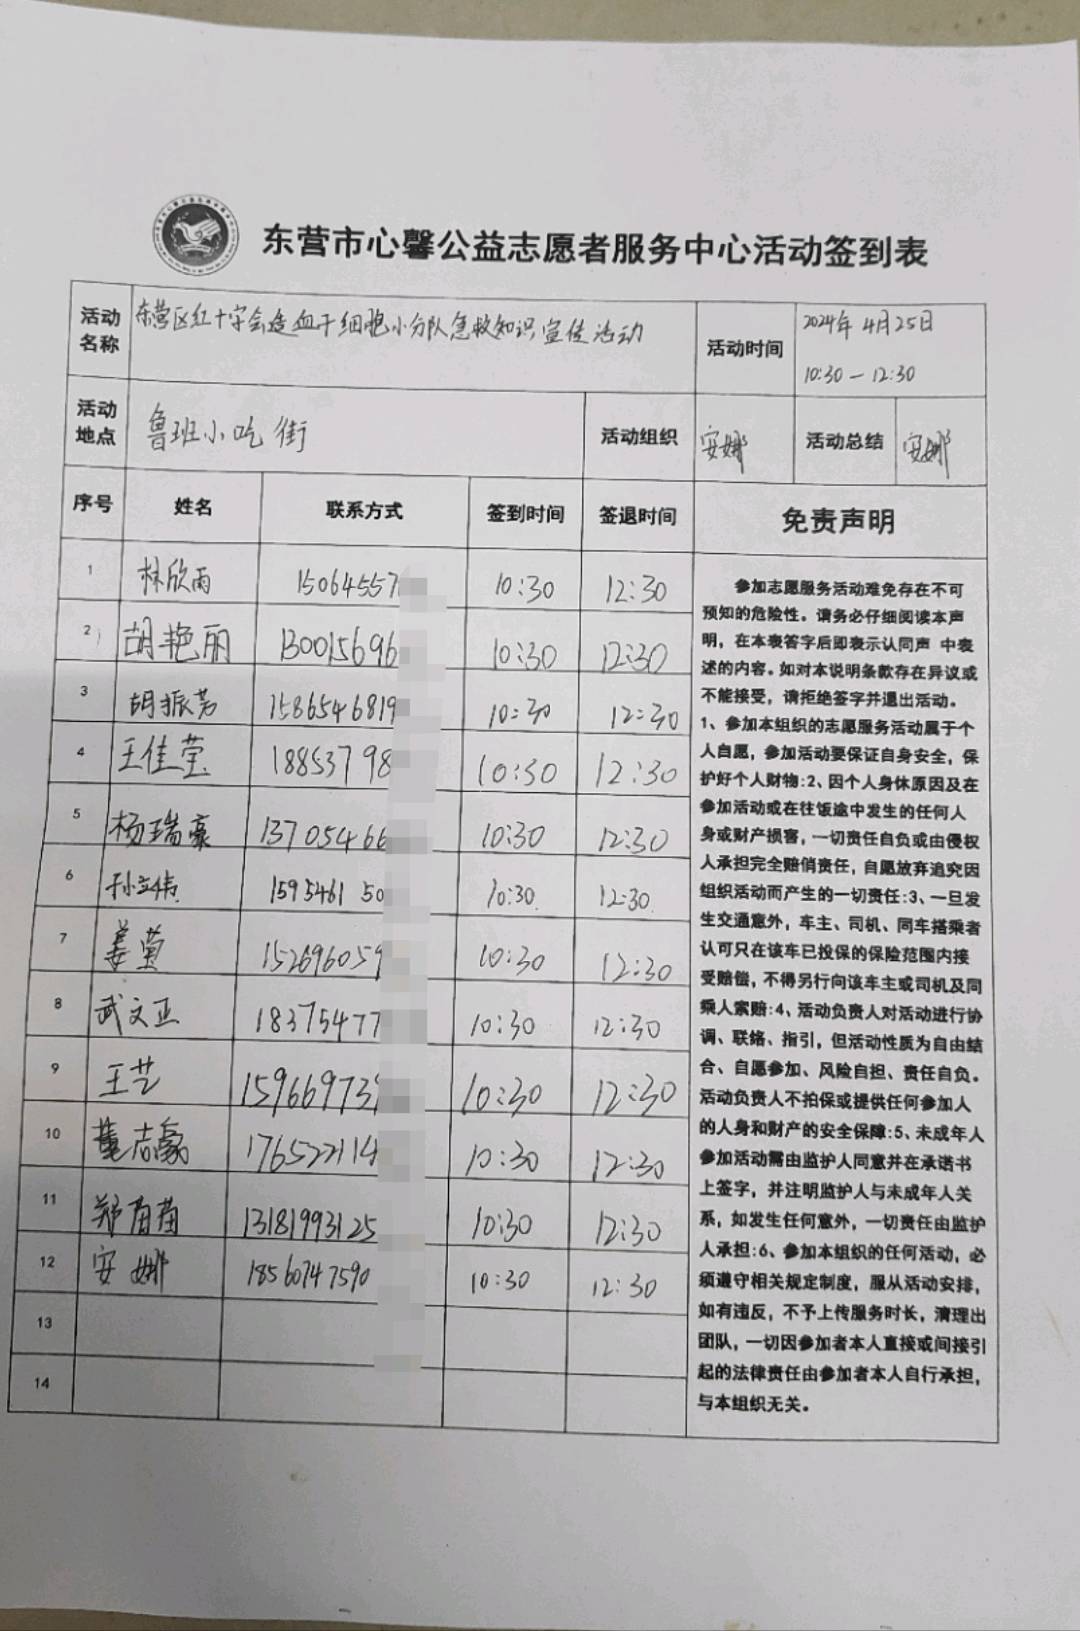 东营市心馨公益志愿者服务中心活动签到表
活动名称 东营区红十字会造血干细胞小分队急救知识宣传活动 活动时间 2024年4月25日
10:30-12:30
活动地点 鲁班小吃街 活动组织 安娜 活动总结 安娜
序号 姓名 联系方式 签到时间 签退时间 免责声明
1 林欣雨 15064557 10:30 12:30
2 胡艳丽 130015696 10:30 12:30
3 胡振芳 1586546819 10:30 12:30
4 王佳莹 18853798 10:30 12:30
5 杨瑞豪 13705466 10:30 12:30
6 孙立伟 159546150 10:30 12:30
7 姜萱 152696059 10:30 12:30
8 武文正 18375477 10:30 12:30
9 王艺 159669739 10:30 12:30
10 董志豪 176522114 10:30 12:30
11 郑苗苗 13181993125 10:30 12:30
12 安娜 18560747590 10:30 12:30
13
14
参加志愿服务活动难免存在不可
预知的危险性。请务必仔细阅读本声
明，在本表答字后即表示认同声 中表
述的内容。如对本说明条款存在异议或
不能接受，请拒绝签字并退出活动。
1、参加本组织的志愿服务活动属于个
人自愿，参加活动要保证自身安全，保
护好个人财物:2、因个人身休原因及在
参加活动或在往饭途中发生的任何人
身或财产损害，一切责任自负或由侵权
人承担完全赔偿责任，自愿放弃追究因
组织活动而产生的一切责任:3、一旦发
生交通意外，车主、司机、同车搭乘者
认可只在该车已投保的保险范围内接
受赔偿，不得另行向该车主或司机及同
乘人索赔:4、活动负责人对活动进行协
调、联络、指引，但活动性质为自由结
合、自愿参加、风险自担、责任自负。
活动负责人不拍保或提供任何参加人
的人身和财产的安全保障:5、未成年人
参加活动需由监护人同意并在承诺书
上签字，并注明监护人与未成年人关
系，如发生任何意外，一切责任由监护
人承担:6、参加本组织的任何活动，必
须遵守相关规定制度，服从活动安排，
如有违反，不予上传服务时长，清理出
团队，一切因参加者本人直接或间接引
起的法律责任由参加者本人自行承担，
与本组织无关。